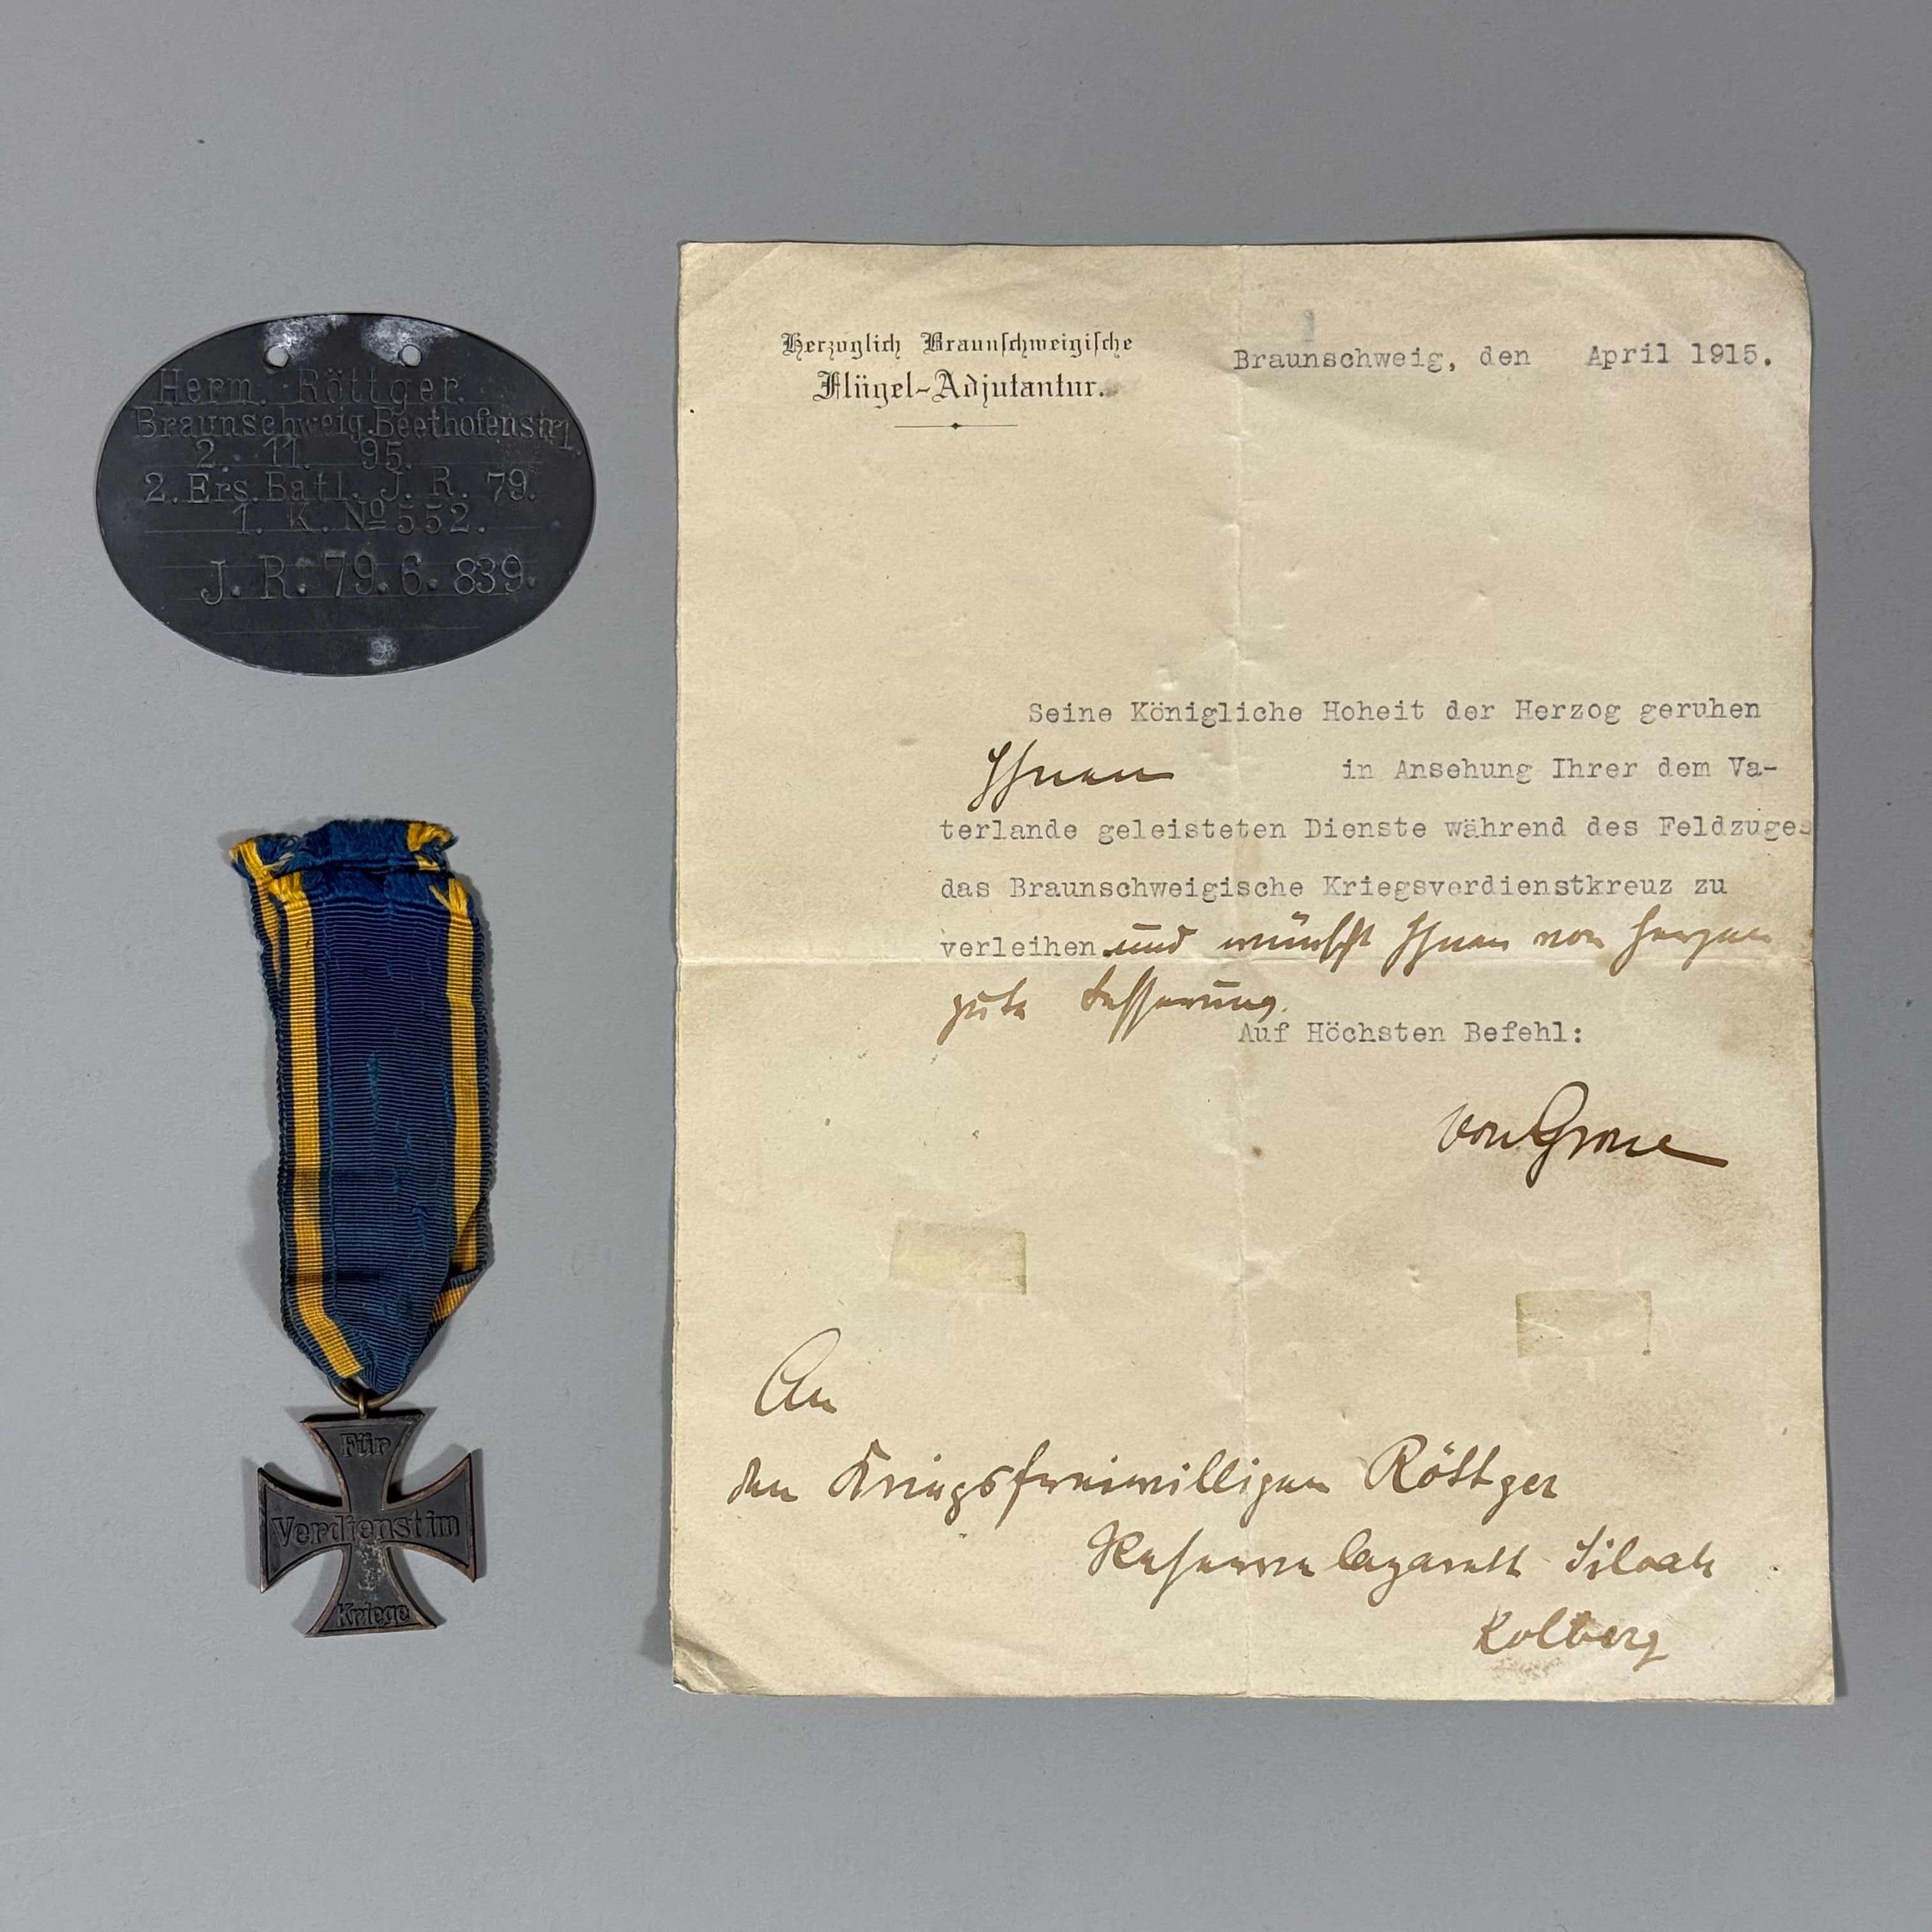 Herm. Röttger.
Braunschweig.Beethofenstr.1.
2. 11. 95.
2. Ers. Batl. J. R. 79.
1. K. No 552.
J. R. 79. 6. 839.
Für
Verdienst im
Kriege
Herzoglich Braunschweigische
Flügel-Adjutantur.
Braunschweig, den April 1915.
Seine Königliche Hoheit der Herzog geruhen
Ihnen in Ansehung Ihrer dem Va-
terlande geleisteten Dienste während des Feldzuges
das Braunschweigische Kriegsverdienstkreuz zu
verleihen und wünscht Ihnen von Herzen
gute Besserung.
Auf Höchsten Befehl:
von Grone
An
den Kriegsfreiwilligen Röttger
Reservelazarett Siloah
Kolberg